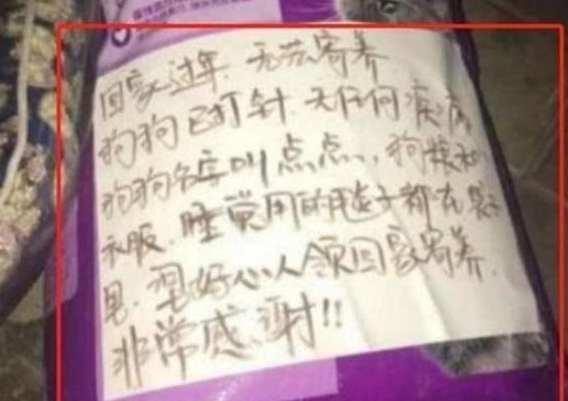 回家过年.无法寄养
狗狗已打针.无任何疾病
狗狗名字叫点点,狗粮和
衣服.睡觉用的毯子都在袋子
里.望好心人领回家寄养.
非常感谢!!